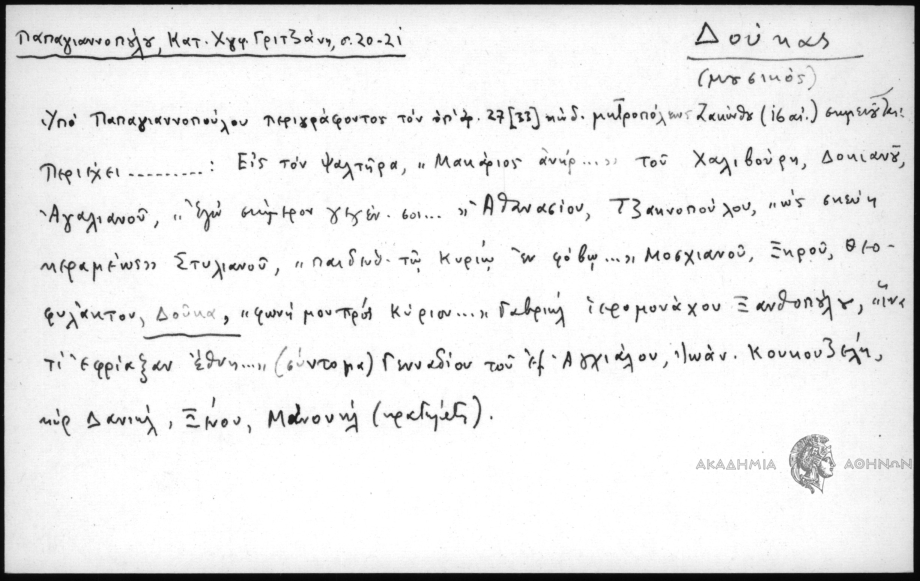 Παπαγιαννοπούλου, Κατ. Χγφ. Γριτζάνη, σ. 20-21
Δούκας
(μουσικός)
Ὑπὸ Παπαγιαννοπούλου περιγράφοντος τὸν ὑπ' ἀρ. 27 [33] κώδ. μητροπόλεως Ζακύνθου ( αἰ.) σημειοῦται:
Περιέχει ..........: Εἰς τὸν ψαλτῆρα, "Μακάριος ἀνήρ..." τοῦ Χαλιβούρη, Δοκιανοῦ,
Ἀγαλιανοῦ, "Ἐγὼ σήμερον γεγέν. σοι..." Ἀθανασίου, Τζακνοπούλου, "ὡς σκεύη
κεραμέως" Στυλιανοῦ, "παιδευθ. τῷ Κυρίῳ ἐν φόβῳ..." Μοσχιανοῦ, Ξηροῦ, Θεο-
φυλάκτου, Δούκα, "φωνῇ μου πρὸς Κύριον..." Γαβριὴλ ἱερομονάχου Ξανθοπούλου, "ἵνα
τί ἐφρίαξαν ἔθνη..." (σύντομα) Γενναδίου τοῦ ἐξ Ἀγχιάλου, Ἰωάν. Κουκουζέλη,
κὺρ Δανιήλ, Ξένου, Μανουήλ (κρατήματα).
ΑΚΑΔΗΜΙΑ ΑΘΗΝΩΝ